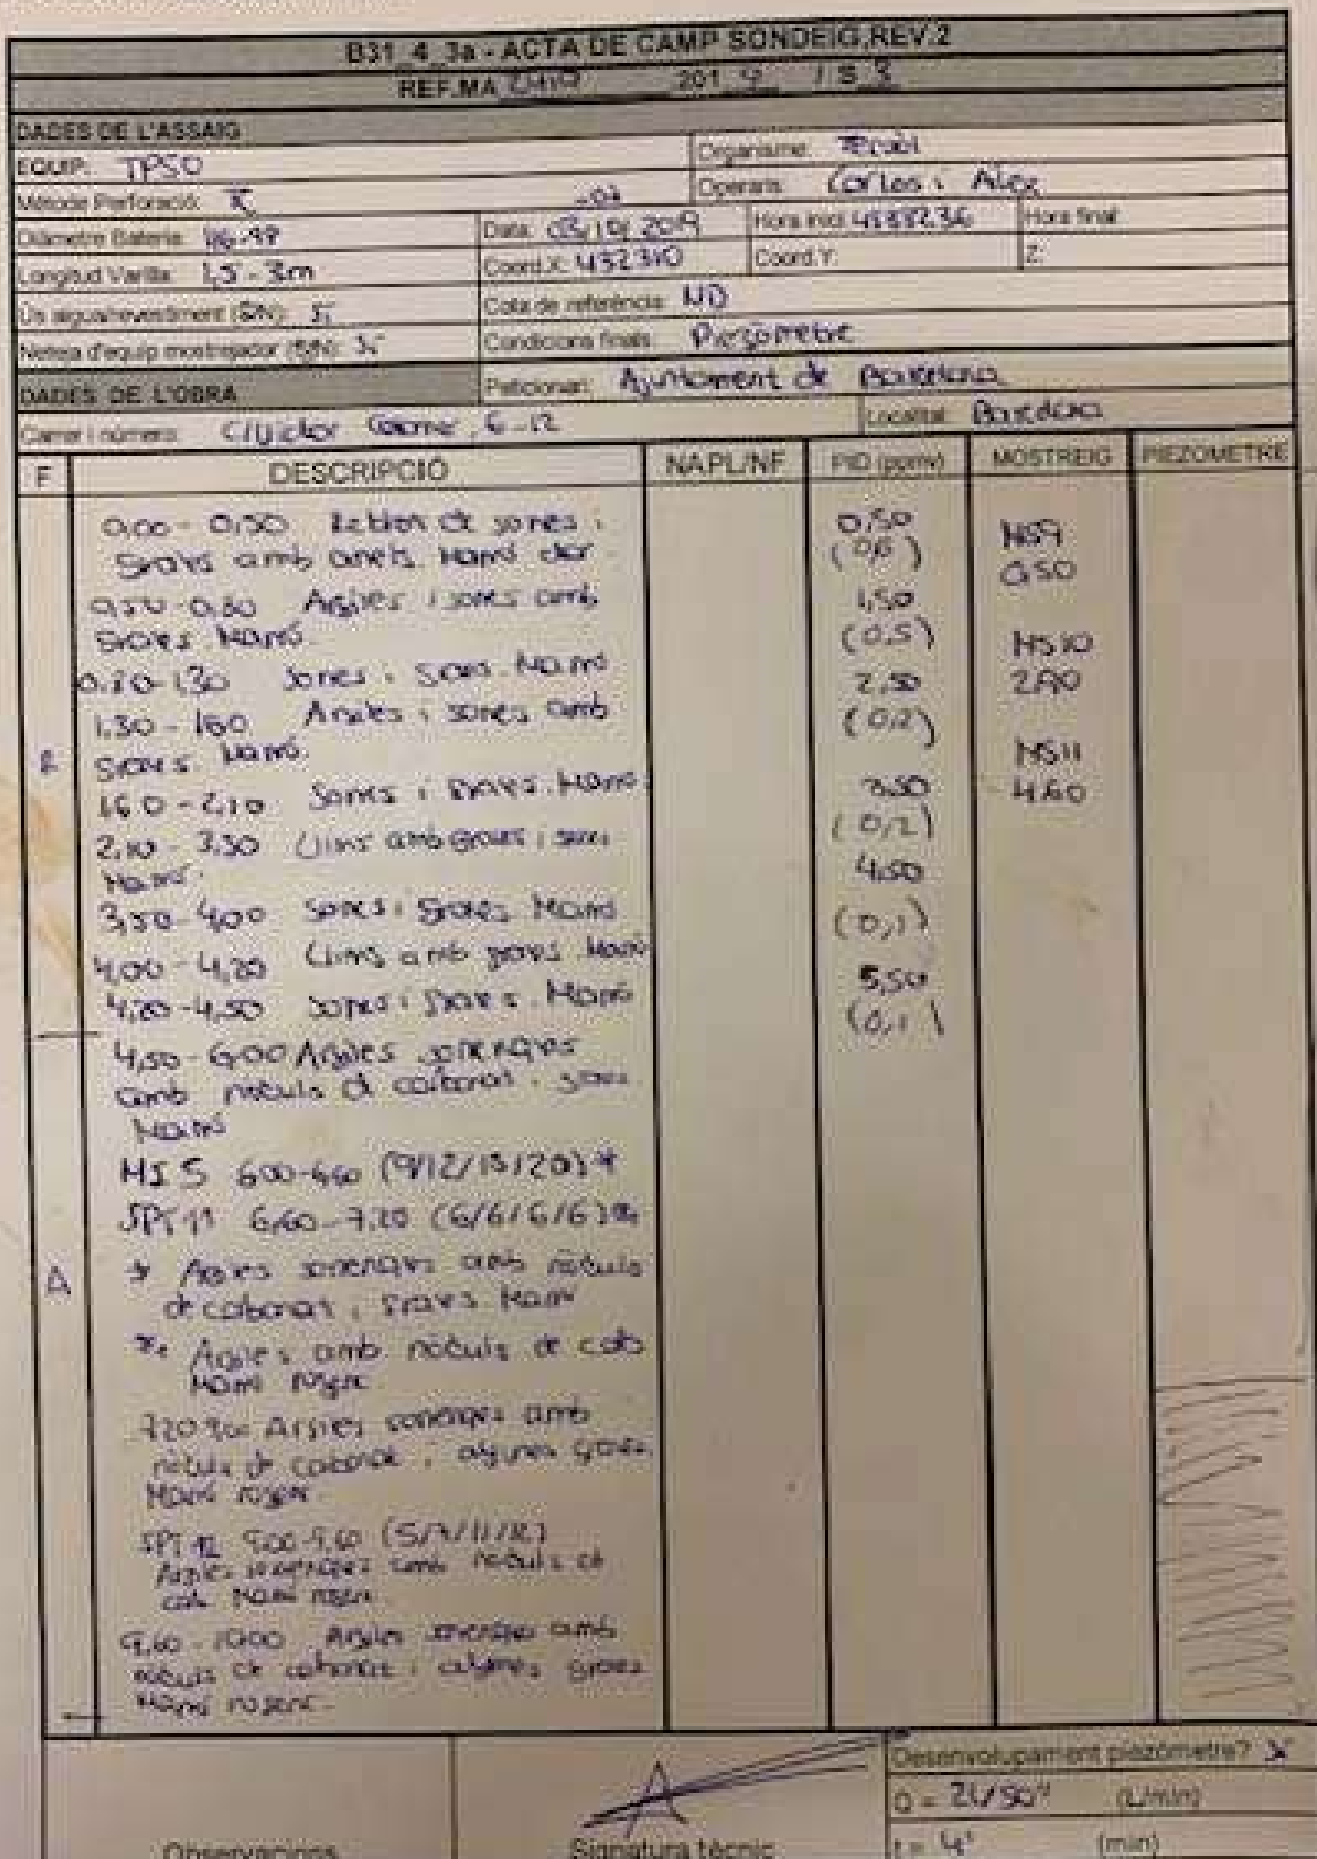 B31_4_3a - ACTA DE CAMP SONDEIG.REV.2
REF.MA 201 9 / S 3
DADES DE L'ASSAIG
EQUIP: TP50
Organisme:
Mètode Perforació: R
Operaris: Carlos i Alex
Diàmetre Bateria: 116-98
Data: 03/10/2019
Hora inici: 4588236
Hora final:
Longitud Varilla: 1,5 - 3m
Coord.X: 432310
Coord.Y:
Z:
Ús aigua/revestiment (S/N): Si
Cota de referència: ND
Neteja d'equip mostrejador (S/N): Si
Condicions finals: Piezòmetre
DADES DE L'OBRA
Peticionari: Ajuntament de Barcelona
Carrer i número: C/Víctor 6-12
Localitat: Barcelona
F
DESCRIPCIÓ
NAPL/NF
PID (ppmv)
MOSTREIG
PIEZOMETRE
0,00 - 0,50 Reblert de sorres i
graves amb Marró clar
0,50-0,80 Argiles i sorres amb
graves. Marró.
0,80-1,30 Sorres i graves. Marró
1,30 - 1,60 Argiles i sorres amb
graves. Marró.
1,60 - 2,10 Sorres i graves. Marró.
2,10 - 3,50 Llims amb graves i sorres
Marró.
3,50 - 4,00 Sorres i graves Marró
4,00 - 4,20 Llims amb graves. Marró
4,20 - 4,50 Sorres i graves. Marró
R
4,50 - 6,00 Argiles sorrenques
amb nòduls de carbonat i graves
Marró
MI 5 6,00-6,60 (9/12/15/20)*
SPT-11 6,60-7,20 (6/6/6/6)**
* Argiles sorrenques amb nòduls
de carbonat i graves Marró
** Argiles amb nòduls de carb
Marró rogenc
7,20 Argiles sorrenques amb
nòduls de carbonat i algunes graves.
Marró rogenc.
SPT-12 9,00-9,60
Argiles sorrenques amb nòduls de
carb Marró rogenc
9,60 - 10,00 Argiles sorrenques amb
nòduls de carbonat i algunes graves
Marró rogenc.
A
0,50
(0,6)
1,50
(0,5)
2,50
(0,2)
3,50
(0,2)
4,50
(0,1)
5,50
(0,1)
MS9
0,50
MS10
MS11
4,60
Observacions
Signatura tècnic
Desenvolupament piezòmetre? Si
Q = 2L/50" (L/min)
t = 4' (min)